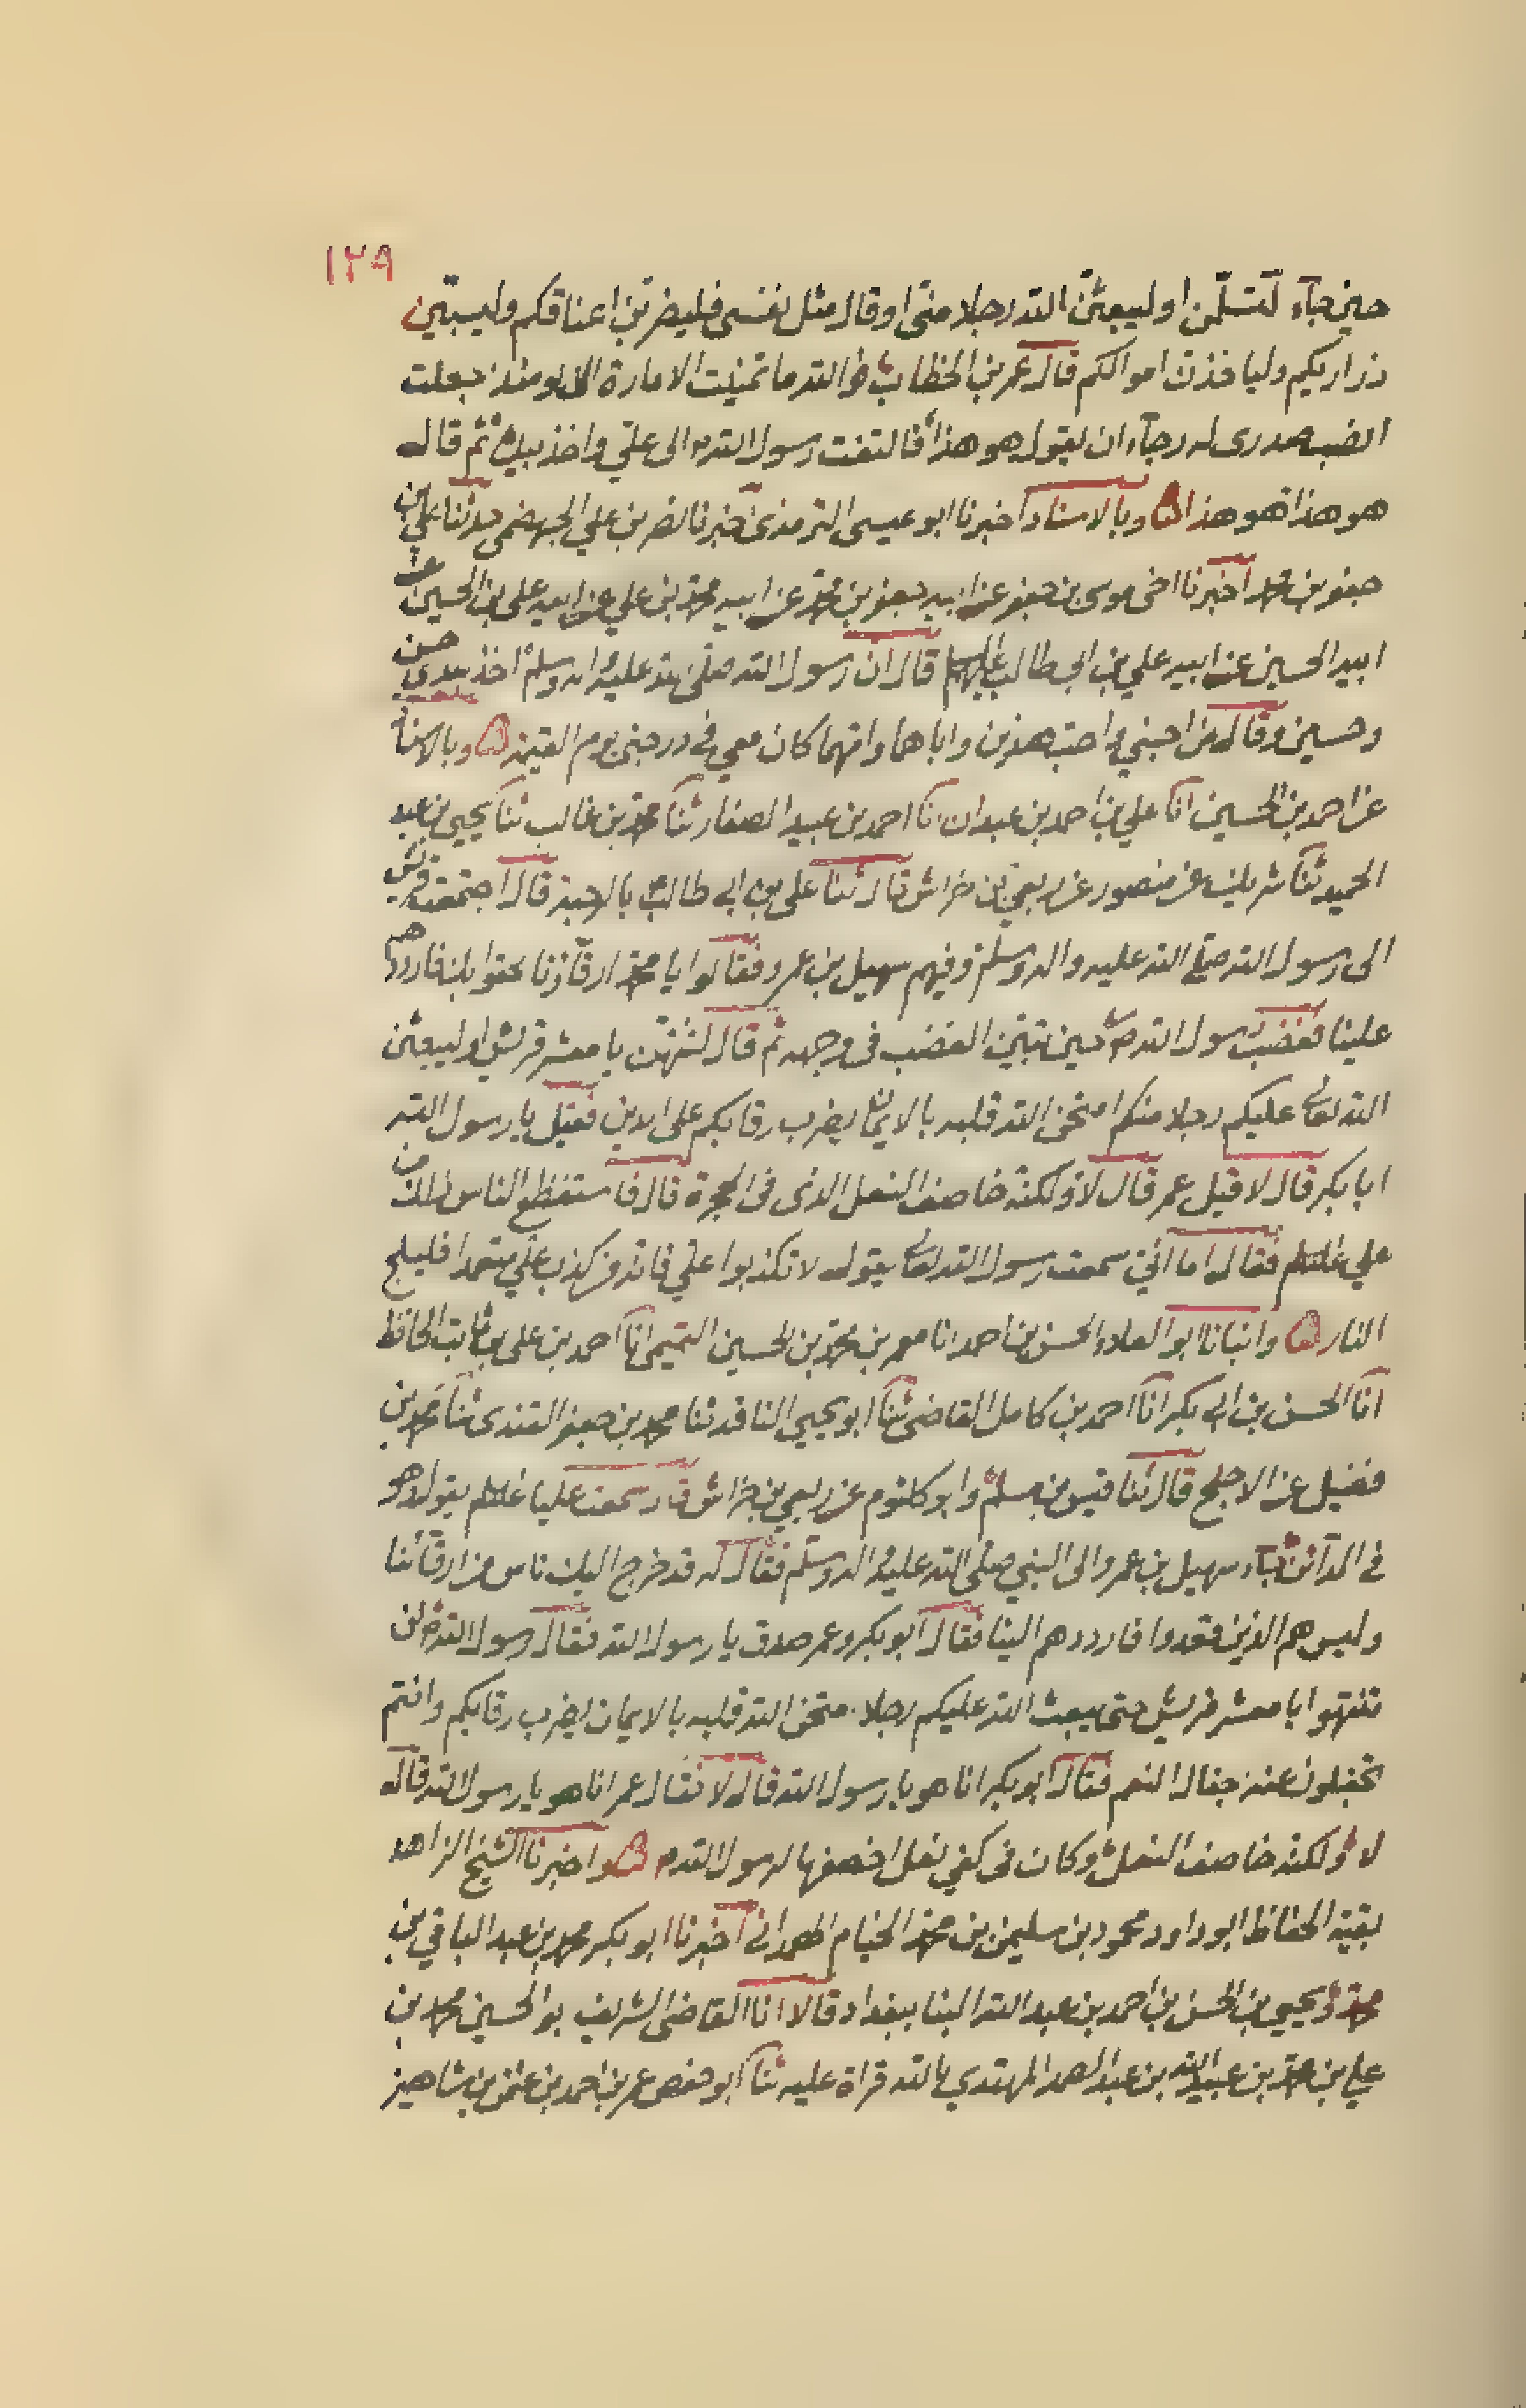 ١٢٩
حين جآء لتسلمن او ليبعثن الله رجلا منى او قال مثل نفسى فليضربن اعناقكم وليسبين
ذراريكم وليا خذن اموالكم قال عمر بن الخطاب فو الله ما تمنيت الامارة الا يومئذ جعلت
انصب صدرى له رجآء ان يقول هو هذا فالتفت رسول الله الى علي واخذ بيده ثم قال
هو هذا هو هذا وبالاسناد اخبرنا ابو عيسى الترمذى اخبرنا نصر بن علي الجهضمى حدثنا علي بن
جعفر بن محمد اخبرنا اخى موسى بن جعفر عن ابيه جعفر بن محمد عن ابيه محمد بن علي عن ابيه على بن الحسين عن
ابيه الحسين عن ابيه علي بن ابى طالب قال ان رسول الله صلى الله عليه واله وسلم اخذ بيدى حسن
وحسين وقال من احبني واحب هذين واباهما وامهما كان معي في درجتى يوم القيمة وبالاسناد
عن احمد بن الحسين انا علي بن احمد بن عبدان انا احمد بن عبيد الصفار ثنا محمد بن غالب ثنا يحيى بن عبد
الحميد ثنا شريك عن منصور عن ربعي بن خراش قال ثنا على بن ابى طالب بالرحبة قال اجتمعت قريش
الى رسول الله صلى الله عليه واله وسلم وفيهم سهيل بن عمرو فقالوا يا محمد ارقاؤنا لحقوا بك فارددهم
علينا فغضب رسول الله حين تبين الغضب فى وجهه ثم قال لتنتهن يا معشر قريش او ليبعثن
الله تعالى عليكم رجلا منكم امتحن الله قلبه بالايمان يضرب رقابكم على الدين فقيل يا رسول الله
ابا بكر قال لا قيل عمر قال لا ولكنه خاصف النعل الذى فى الحجرة قال فاستفظع الناس ذلك من
علي فقال اما انى سمعت رسول الله تعالى يقول لا تكذبوا علي فانه من كذب علي متعمدا فليلج
النار وانبانا ابو العلاء الحسن بن احمد انا معمر بن محمد بن الحسين التميمى انا احمد بن على بن ثابت الحافظ
انا الحسن بن ابى بكر انا احمد بن كامل القاضى ثنا ابو يحيى الناقد ثنا محمد بن جعفر القندى ثنا محمد بن
فضيل عن الاجلح قال ثنا قيس بن مسلم وابو كلثوم عن ربعي بن خراش قال سمعت عليا يقول وهو
في المدآئن جآء سهيل بن عمرو الى النبي صلى الله عليه واله وسلم فقال له قد خرج اليك ناس من ارقآئنا
وليس هم الدين تعبدوا فارددهم الينا فقال ابو بكر وعمر صدق يا رسول الله فقال رسول الله لن
تنتهوا يا معشر قريش حتى يبعث الله عليكم رجلا امتحن الله قلبه بالايمان يضرب رقابكم وانتم
تجفلون عنه جفال النعم فقال ابو بكر انا هو يا رسول الله قال لا فقال عمر انا هو يا رسول الله قال
لا ولكنه خاصف النعل وكان فى كفي نعل اخصفها لرسول الله واخبرنا الشيخ الزاهد
بقية الحفاظ ابو داود محمود بن سليمن بن محمد الخيام الهمدانى اخبرنا ابو بكر محمد بن عبد الباقي بن
محمد ويحيى بن الحسن بن احمد بن عبد الله البنا ببغداد قالا انا القاضى الشريف بو الحسين محمد بن
علي بن محمد بن عبيد الله بن عبد الصمد المهتدي بالله قراة عليه ثنا ابو حفص عمر بن احمد بن عثمن بن شاهين